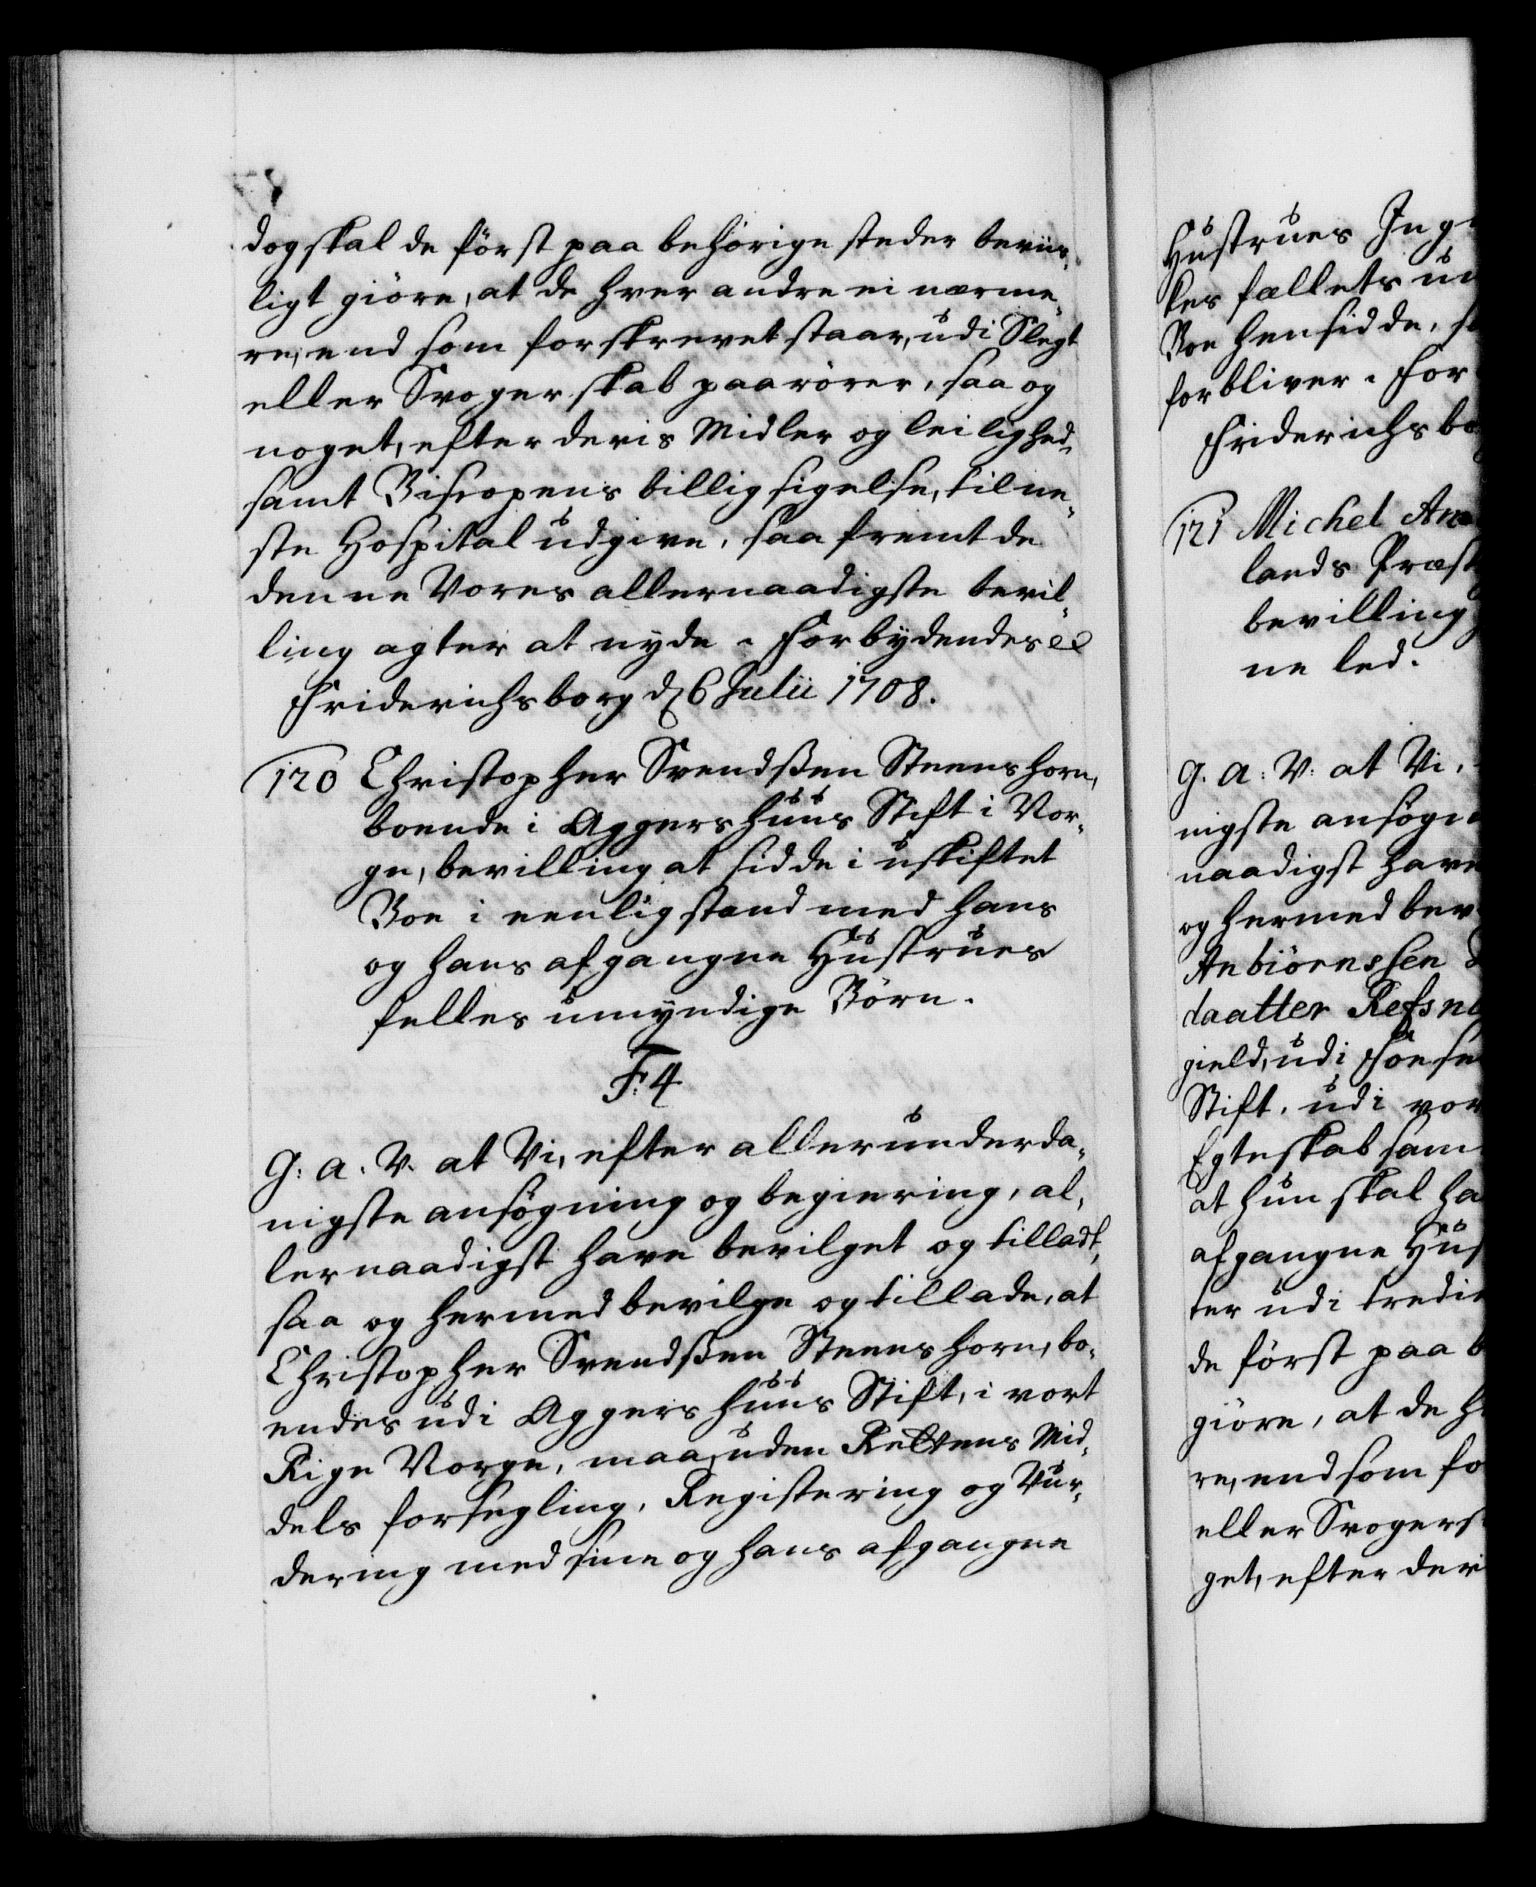 dog skal de först paa behörige steder beviis-
ligt giöre, at de hver andre ei nærme-
re, end som forskrevet staar, udi Slegt
eller Svogerskab paarörer, saa og
noget, efter deris Midler og leilighed,
samt Biscopens billigsigelse, til ne-
ste Hospital udgive, saa fremt de
denne Vores allernaadigste bevil-
ling agter at nyde. Forbydendes
Friderichsborg d. 6 Julii 1708.
120 Christopher Svendßen Steenshorn,
boende i Aggershuus Stift i Nor-
ge, bevilling at sidde i uskiftet
Boe i eenlig stand med hans
og hans afgangne Hustrues
felles umyndige Börn.
F. 4
G: A. V. at Vi, efter allerunderda-
nigste ansögning og begiering, al-
lernaadigst have bevilget og tilladt,
saa og hermed bevilge og tillade, at
Christopher Svendßen Steenshorn, bo-
endes udi Aggershuus Stift, i vort
Rige Norge, maa, uden Rettens Mid-
dels forsegling, Registering og Vur-
dering med sine og hans afgangne
Hustrues
kes fællets
Boe hensidde,
forbliver. For
Friderichsbo
121 Michel
lands Præst
bevilling
ne led.
G. A: V: at Vi,
nigste ansögn
naadigst have
og hermed bev
Anbiörnssen
daatter Refsn
gield, udi
Stift, udi vor
Egteskab sam
at hun skal ha
afgangne Hus
ter udi tredie
de först paa b
giöre, at de h
re, end som fo
eller Svogers
get, efter der